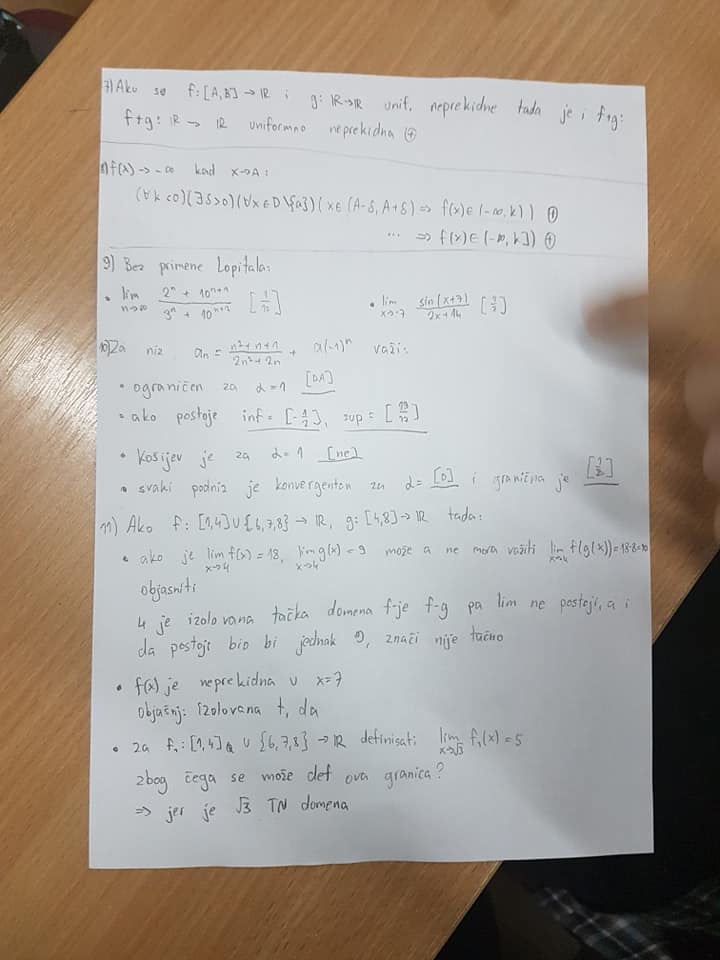 7) Ako se f: [A,B] → ℝ i g: ℝ→ℝ unif. neprekidne tada je i f+g:
f+g: ℝ → ℝ uniformno neprekidna ⊕
f(x) → -∞ kad x→A:
(∀k<0)(∃δ>0)(∀x∈D\{a})(x∈(A-δ, A+δ) ⇒ f(x)∈(-∞,k))
... ⇒ f(x)∈(-∞,k]) ⊕
9) Bez primene Lopitala:
• lim n→∞ (2^n + 10^(n+1))/(3^n + 10^(n+2)) [1/10] • lim x→-7 sin(x+7)/(2x+14) [1/2]
10) Za niz a_n = (n²+n+1)/(2n²+2n) + α(-1)^n važi:
• ograničen za α=1 [DA]
• ako postoje inf = [-1/2], sup = [19/12]
• Košijev je za α=1 [ne]
• svaki podniz je konvergentan za α= [0] i granična je [1/2]
11) Ako f: [1,4]∪{6,7,8} → ℝ, g: [4,8] → ℝ tada:
• ako je lim x→4 f(x) = 18, lim x→4 g(x) = 9 može a ne mora važiti lim f(g(x))=
objasniti
4 je izolovana tačka domena f-je f-g pa lim ne postoji, a i
da postoji bio bi jednak 9, znači nije tačno
• f(x) je neprekidna u x=7
Objašnj: izolovana t, da
• za f₁: [1,4] ∪ {6,7,8} → ℝ definisati lim x→√3 f₁(x) = 5
zbog čega se može def ova granica?
⇒ jer je √3 TN domena